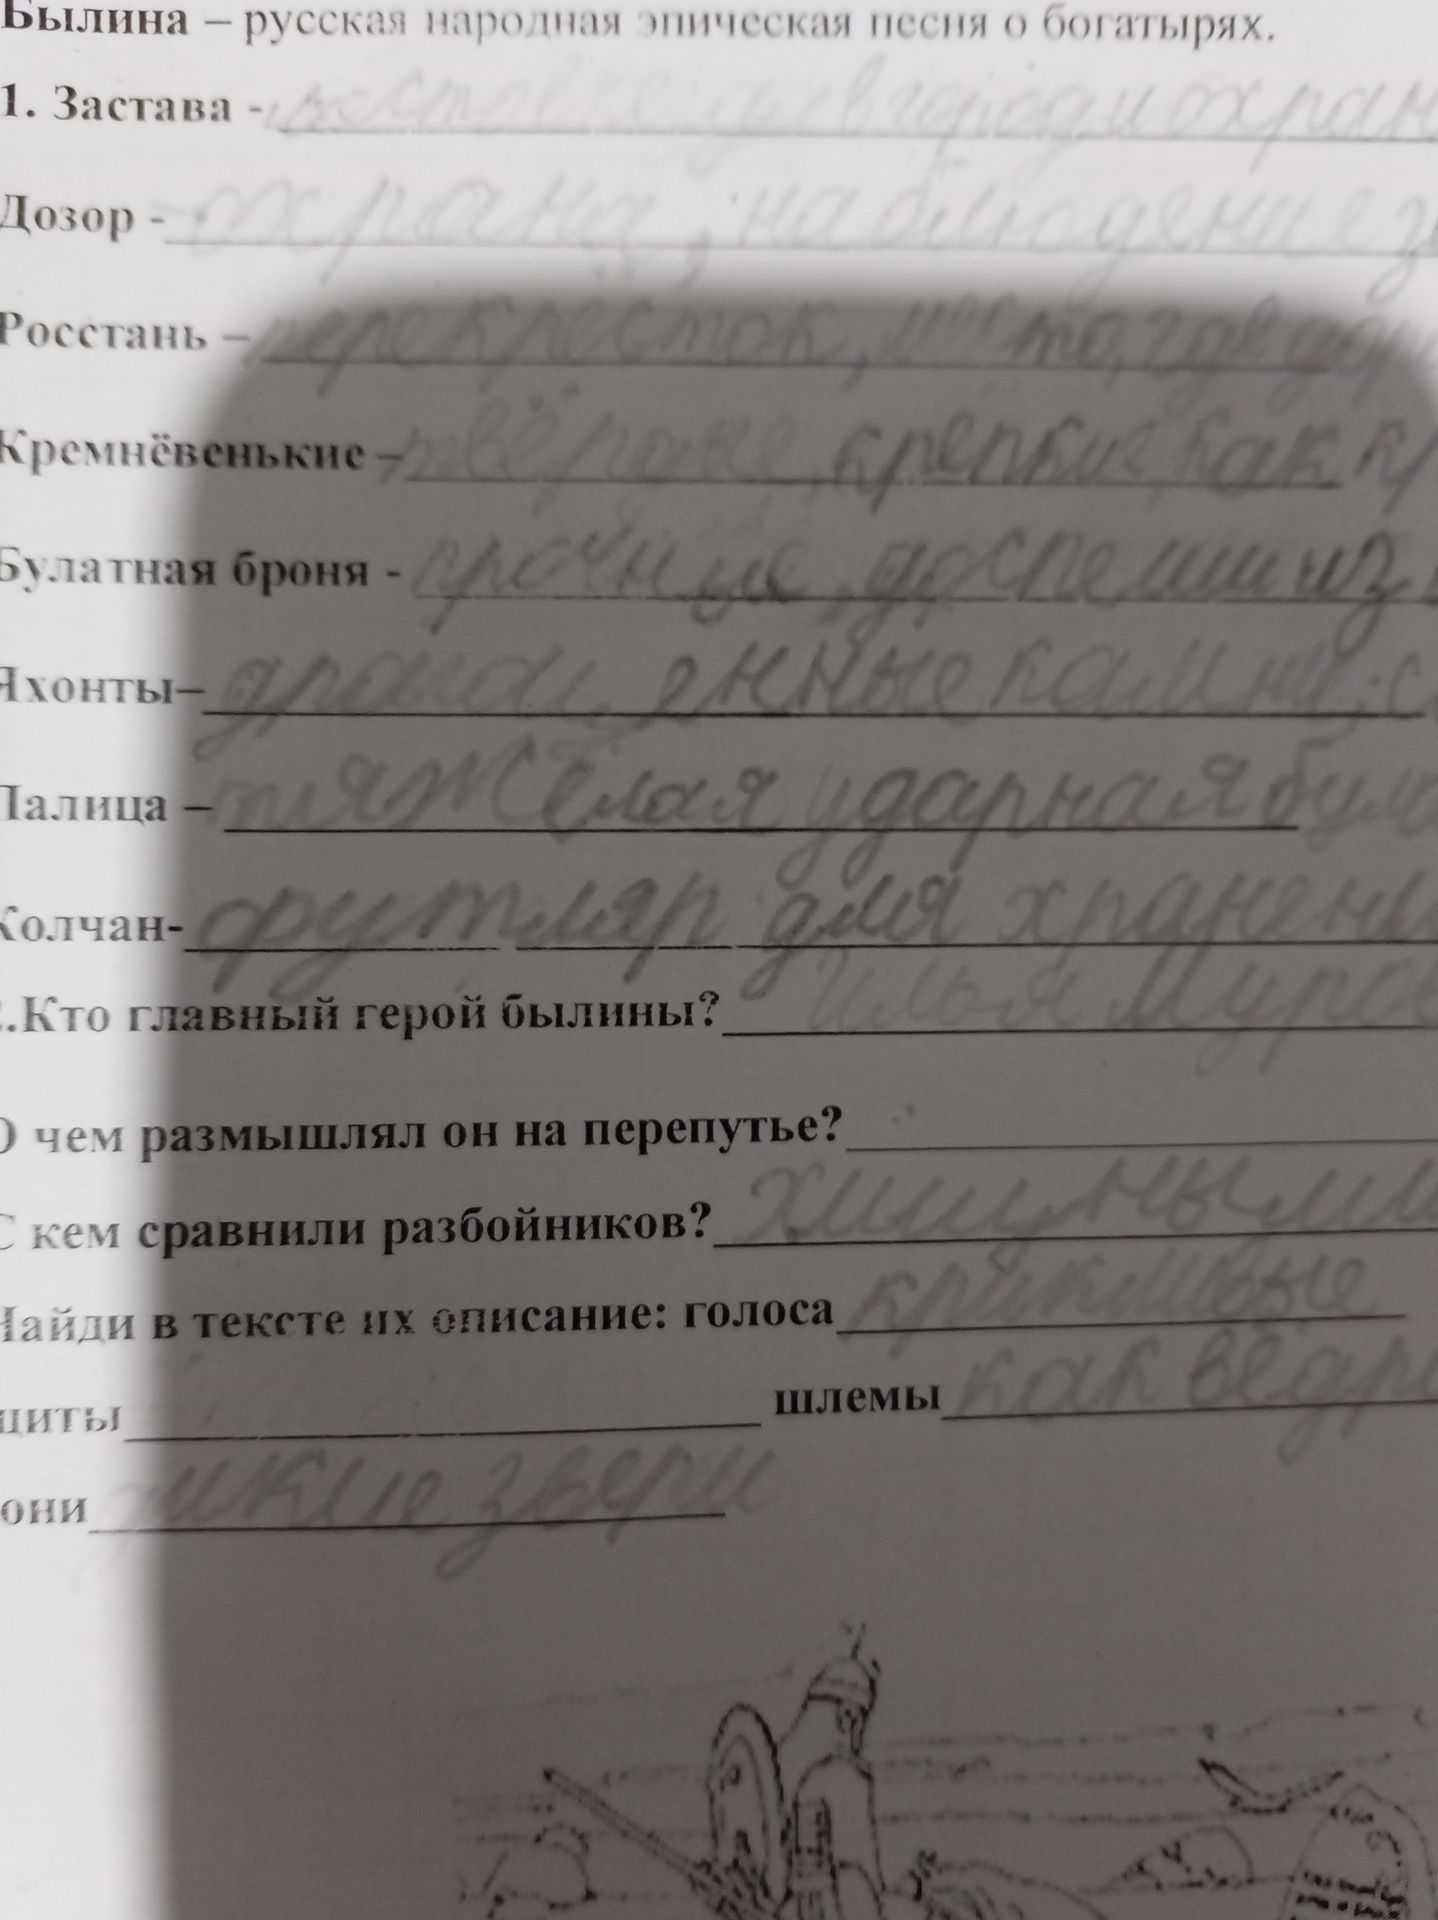 Былина – русская народная эпическая песня о богатырях.
1. Застава - в город и охран
Дозор - охрана, наблюдение з
Росстань – перекрёсток, место, где дор
Кремнёвенькие – крепкие, как кр
Булатная броня - прочные доспехи из
Яхонты– драгоценные камни; с
Палица – тяжёлая ударная була
Колчан- футляр для хранени
.Кто главный герой былины? Илья Муро
О чем размышлял он на перепутье?
С кем сравнили разбойников? хищными
Найди в тексте их описание: голоса крикливые
щиты шлемы как вёдр
они дикие звери